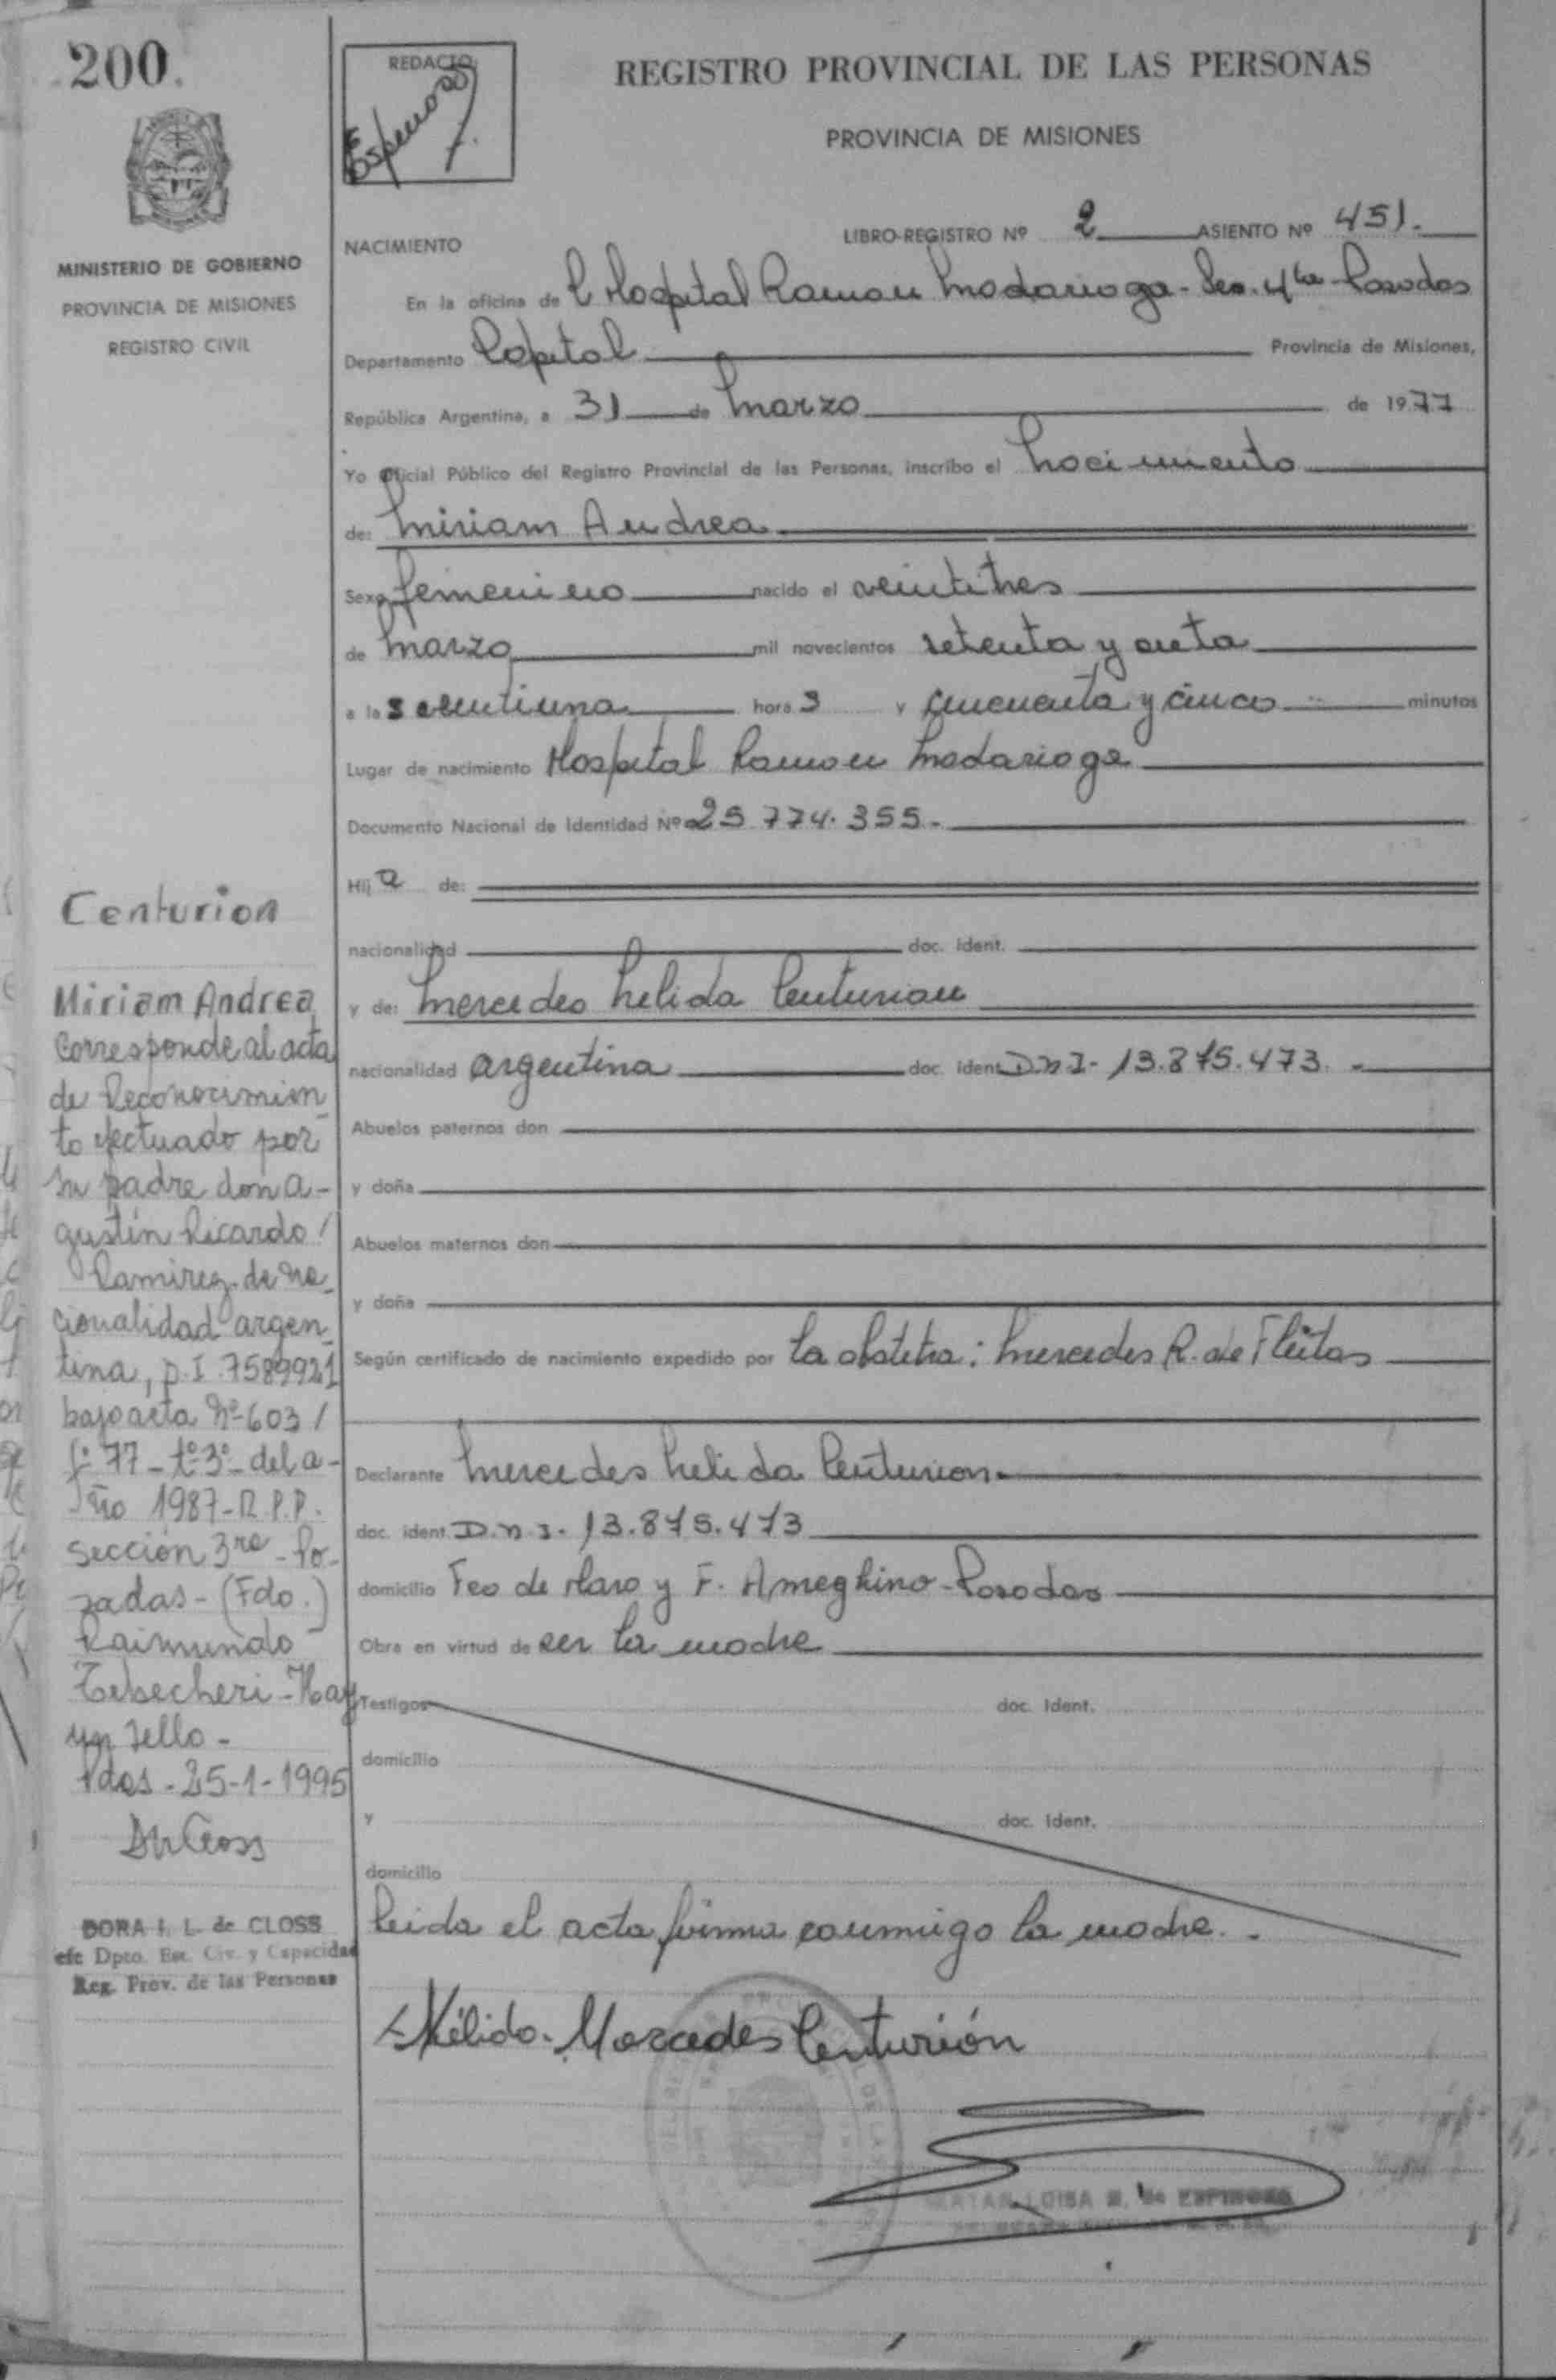 200.
MINISTERIO DE GOBIERNO
PROVINCIA DE MISIONES
REGISTRO CIVIL
REDACTO
Espinosa
REGISTRO PROVINCIAL DE LAS PERSONAS
PROVINCIA DE MISIONES
NACIMIENTO
LIBRO-REGISTRO Nº 2 ASIENTO Nº 451.
En la oficina de l Hospital Ramon Madariaga - Sec. 4ta Posadas
Departamento Capital Provincia de Misiones,
República Argentina, a 31 de Marzo de 1977
Yo Oficial Público del Registro Provincial de las Personas, inscribo el Nacimiento
de: Miriam Andrea
Sexo femenino nacido el veintitres
de Marzo mil novecientos setenta y siete
a las veintiuna horas y cincuenta y cinco minutos
Lugar de nacimiento Hospital Ramon Madariaga
Documento Nacional de Identidad Nº 25.774.355.-
Hija de:
nacionalidad doc. ident.
y de: Mercedes Nelida Centurion
nacionalidad argentina doc. ident. D.N.I- 13.875.473.-
Abuelos paternos don
y doña
Abuelos maternos don
y doña
Según certificado de nacimiento expedido por La obstetra: Mercedes R. de Fleitas
Declarante Mercedes Nelida Centurion.
doc. ident. D.N.I. 13.875.473
domicilio Fco de Haro y F. Ameghino - Posadas
Obra en virtud de ser la madre
Testigos doc. ident.
domicilio
y doc. ident.
domicilio
Leida el acta firma conmigo la madre. .
Nélida. Mercedes Centurión
LOISA M. de ESPINOSA
Centurion
Miriam Andrea
Corresponde al acta
de Reconocimien-
to efectuado por
su padre don A-
gustín Ricardo /
Ramirez. de na-
cionalidad argen-
tina, D.I. 7589921
bajo acta Nº 603 /
fº 77 - tº 3º - del a-
ño 1987 - R.P.P.
sección 3ra - Po-
sadas - (Fdo.)
Raimundo
Tebecheri - Hay
un sello -
Pdas - 25-1-1995
DORA I. L. de CLOSS
efe Dpto. Est. Civ. y Capacidad
Reg. Prov. de las Personas